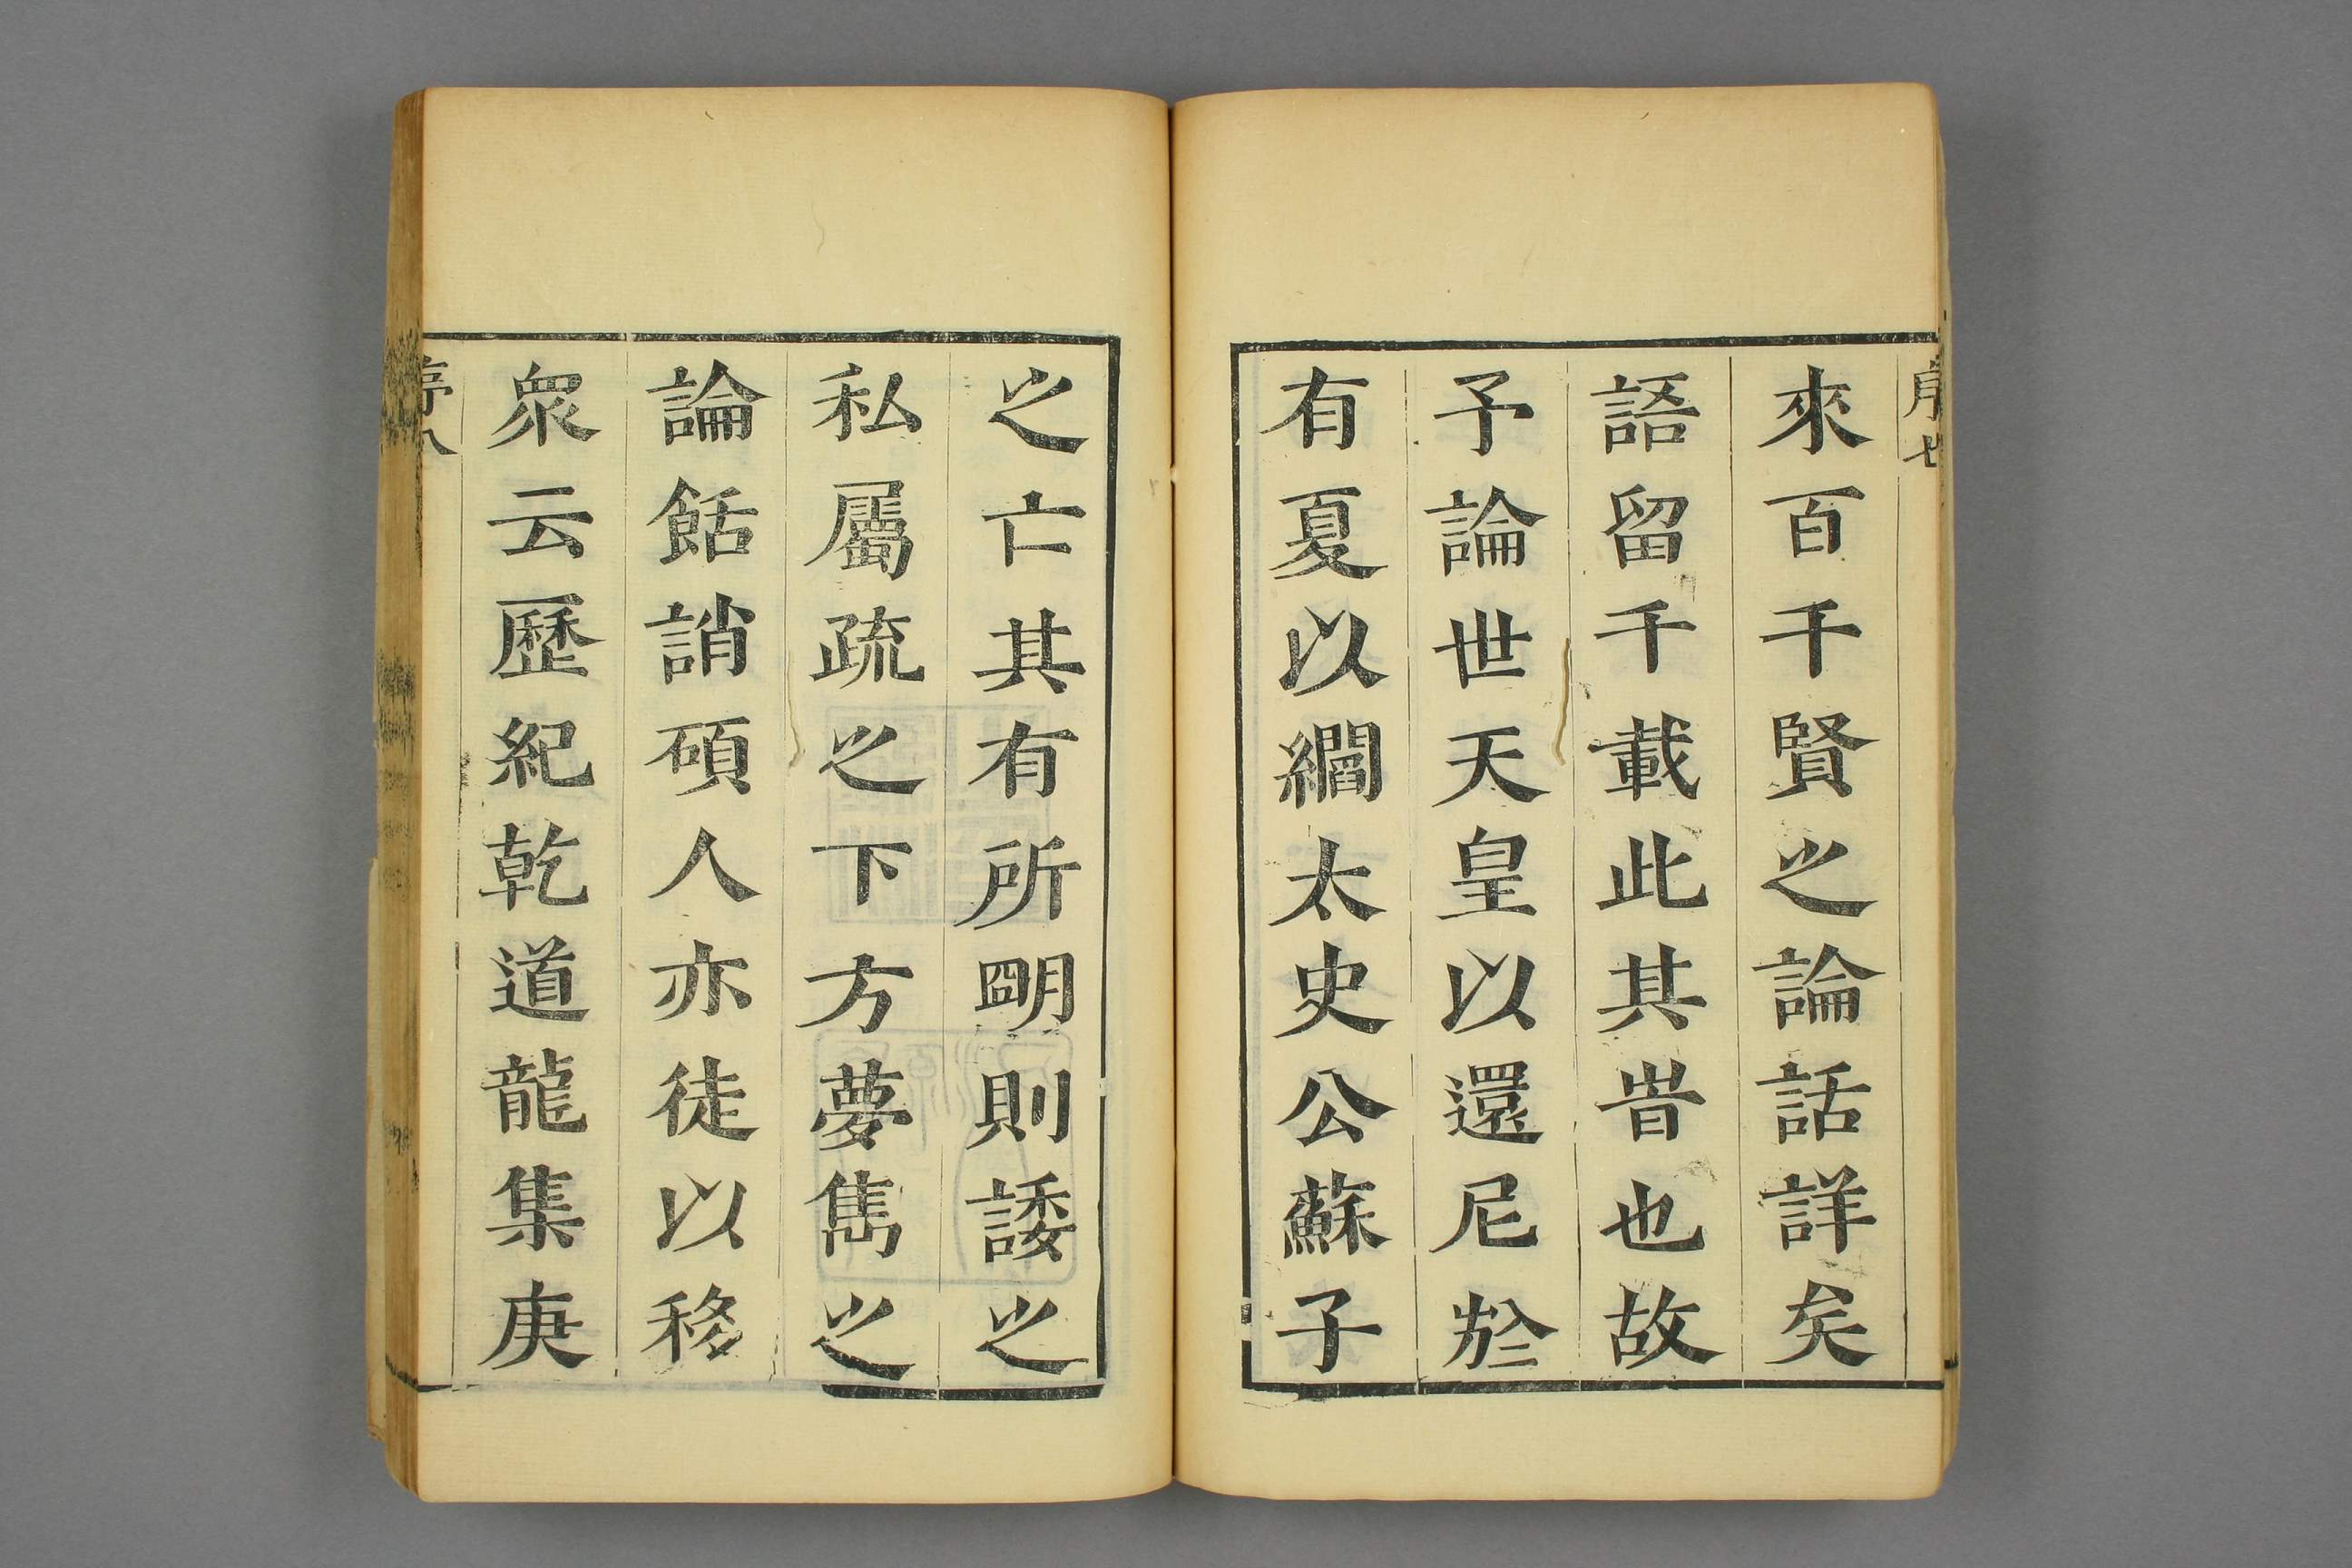 序七
來百千賢之論話詳矣
語留千載此其旹也故
予論世天皇以還尼於
有夏以繝太史公蘇子
之亡其有所朙則諉之
私屬疏之下方夢雋之
論餂誚碩人亦徒以移
衆云歷紀乾道龍集庚
序八